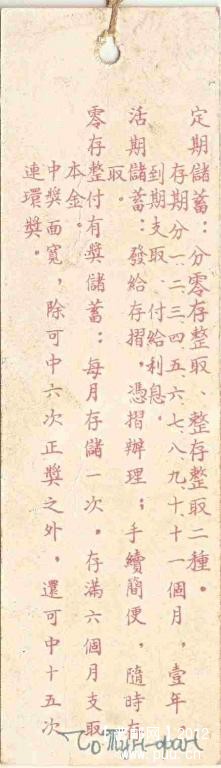 定期儲蓄：分零存整取、整存整取二種。
存期分一二三四五六七八九十十一個月，壹年，
到期支取，付給利息。
活期儲蓄：發給存摺，憑摺辦理；手續簡便，隨時存
取。
零存整付有獎儲蓄：每月存儲一次。存滿六個月支取
本金。
中獎面寬，除可中六次正獎之外，還可中十五次
連環獎。